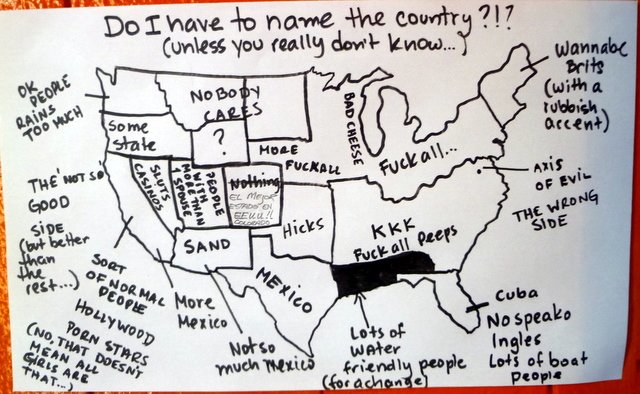 Do I have to name the country?!?
(unless you really don't know...)
OK
PEOPLE
RAINS
TOO MUCH
NOBODY
CARES
Some
State
?
MORE
FUCKALL
BAD CHEESE
Fuckall...
Wannabe
Brits
(with a
rubbish
accent)
THE 'NOT SO
GOOD
SIDE
(but better
than
the
rest...)
SLUTS
CASINOS
PEOPLE
WITH
MORE THAN
1 SPOUSE
Nothing
EL MEJOR
ESTADO EN
EEUU!!
COLORADO
Hicks
KKK
Fuckall peeps
AXIS
OF EVIL
THE WRONG
SIDE
SAND
MEXICO
SORT
OF NORMAL
PEOPLE
HOLLYWOOD
PORN STARS
(NO, THAT DOESN'T
MEAN ALL
GIRLS ARE
THAT...)
More
Mexico
Not so
much Mexico
Lots of
Water
friendly people
(for a change)
Cuba
No speako
Ingles
Lots of boat
People